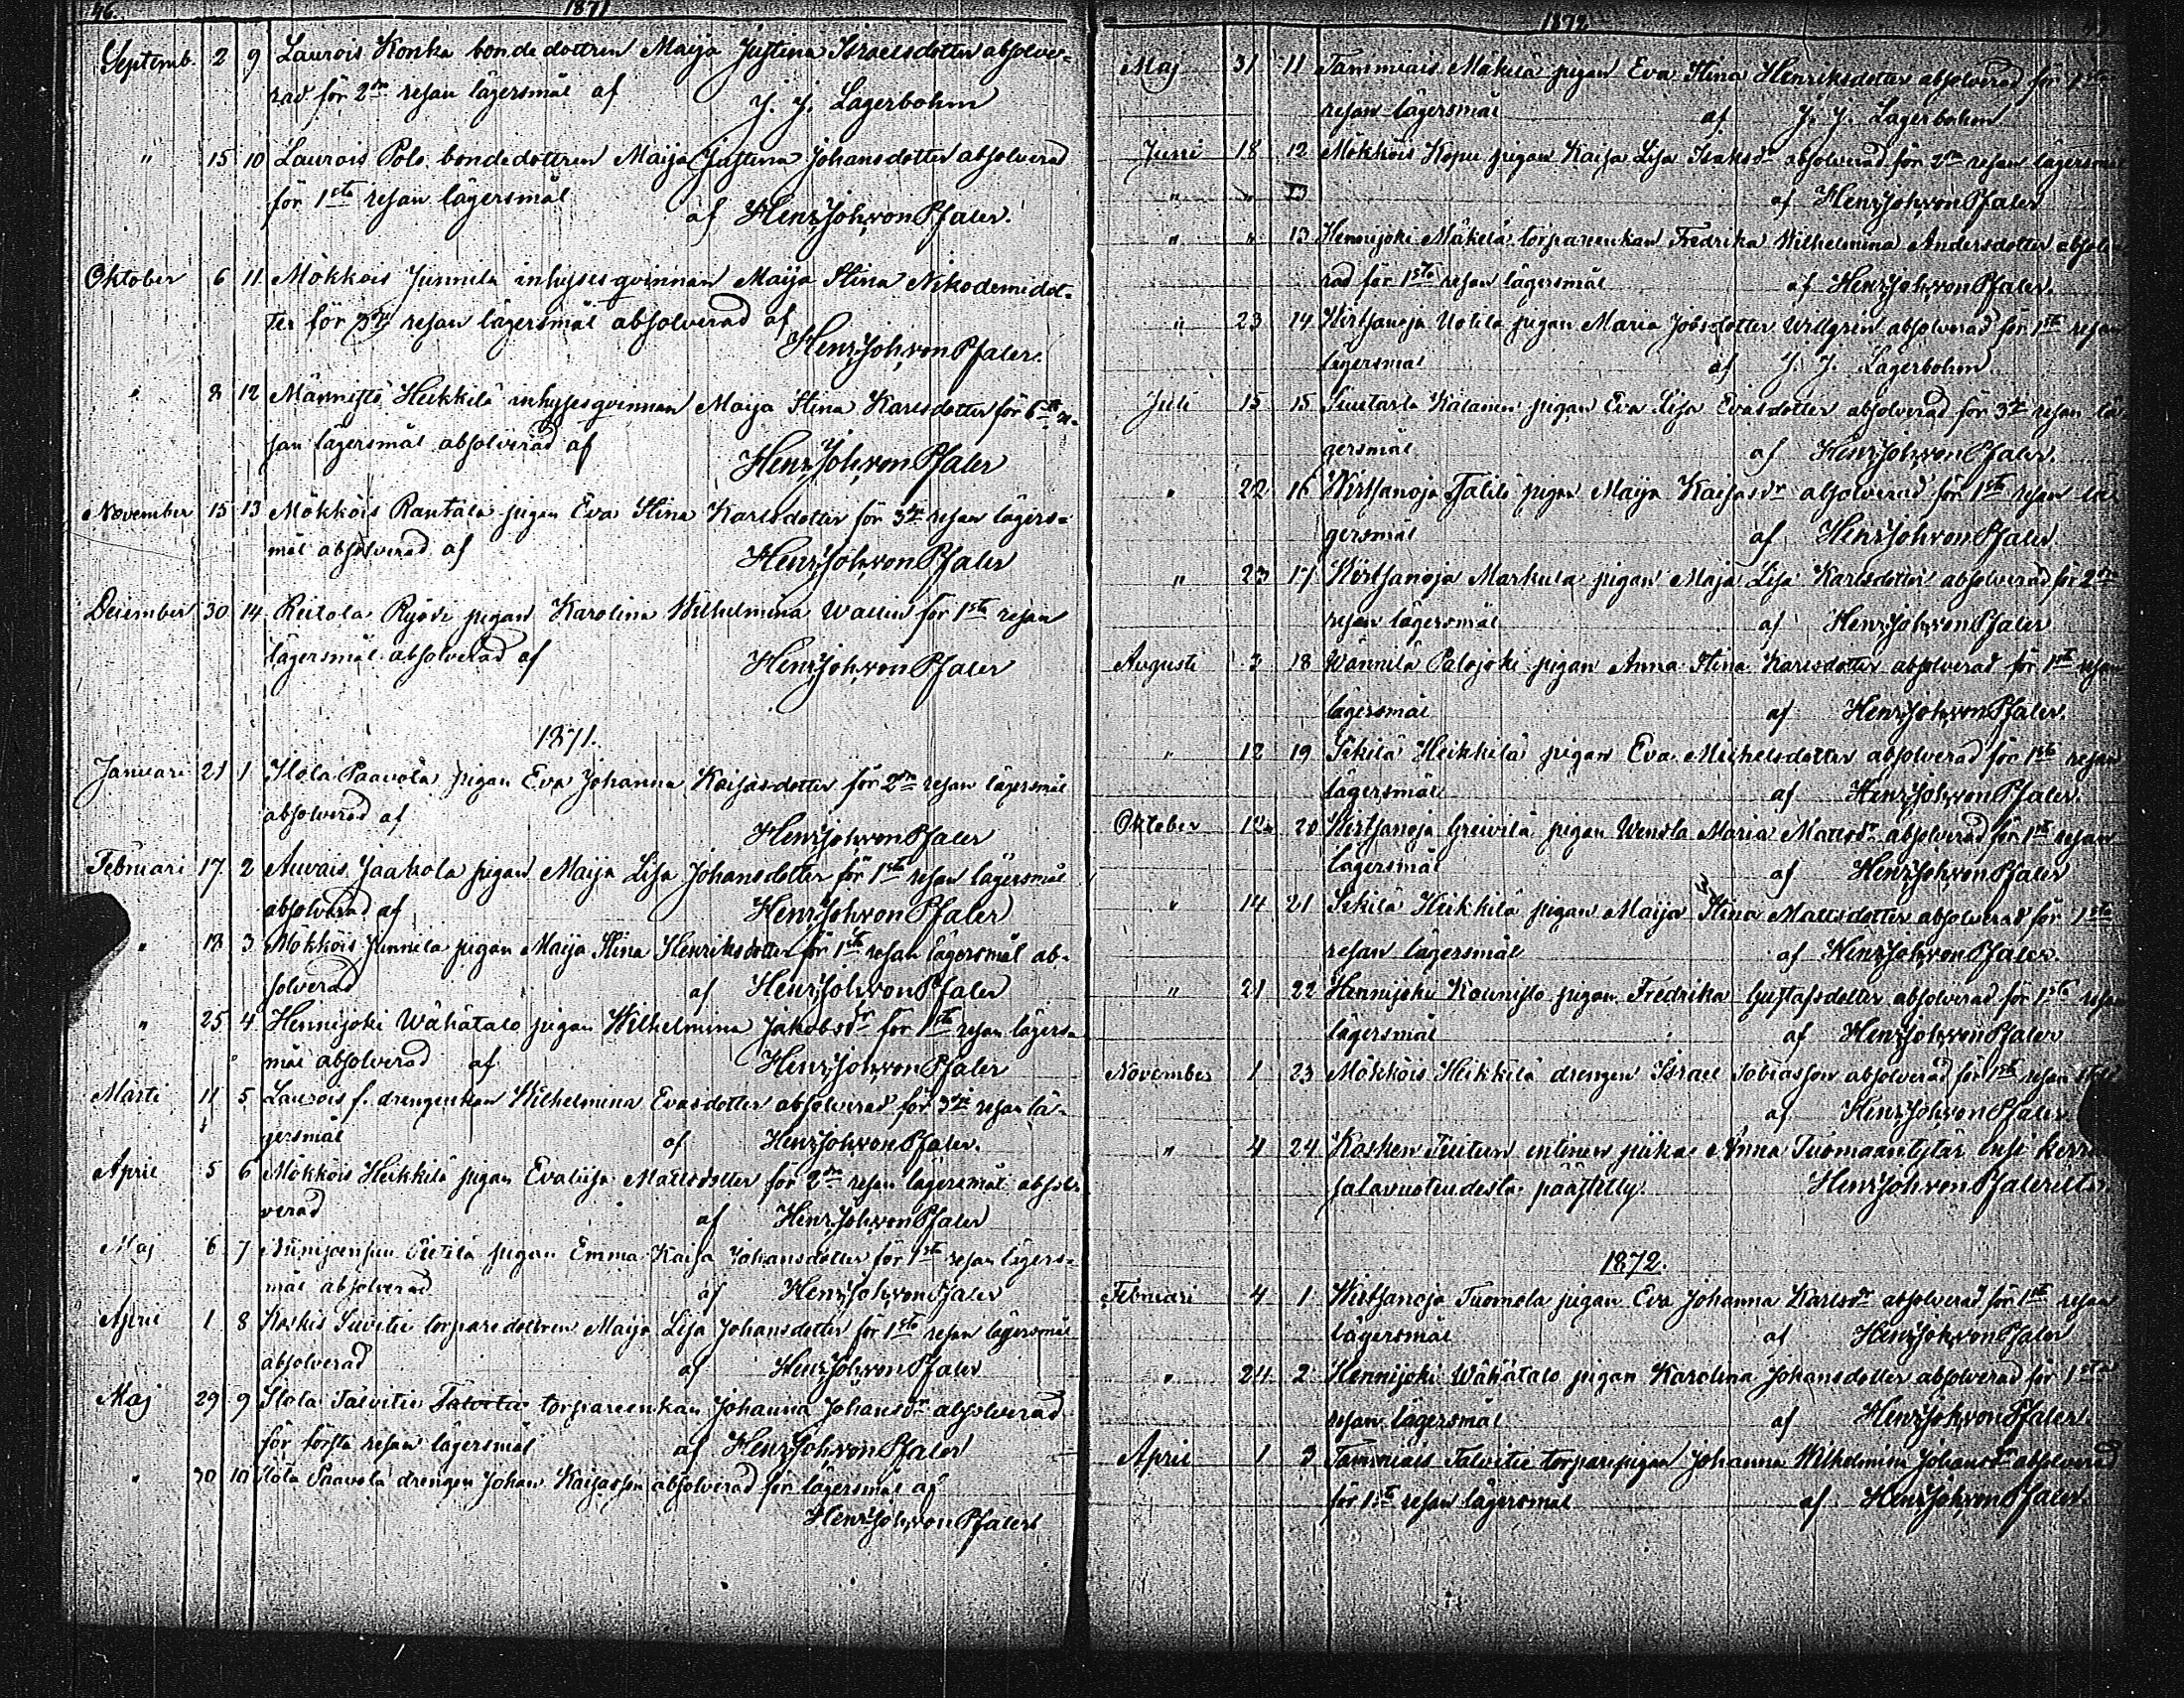 46. 1871
Septemb. 2 9 Laurois Konka bondedottren Maija Justina Israelsdotter absolve-
rad för 2dra resan lägersmål af J. J. Lagerbohm
" 15 10 Laurois Polo bondedottren Maija Justina Johansdotter absolverad
för 1sta resan lägersmål af Henr. Joh. von Pfaler.
Oktober 6 11 Mökkois Junnila inhysesqvinnan Maija Stina Nikodemidot-
ter för 3dje resan lägersmål absolverad af
Henr. Joh. von Pfaler.
" 8 12 Männistö Heikkilä inhysesqvinnan Maija Stina Karlsdotter för 6te re-
san lägersmål absolverad af Henr. Joh. von Pfaler
November 15 13 Mökköis Rantala pigan Eva Stina Karlsdotter för 3dje resan lägers-
mål absolverad af Henr. Joh. von Pfaler
December 30 14 Reitola Ryövi pigan Karolina Wilhelmina Wallin för 1sta resan
lägersmål absolverad af Henr. Joh. von Pfaler
1871.
Januari 21 1 Ilola Paavola pigan Eva Johanna Kaisasdotter för 2dra resan lägersmål
absolverad af Henr. Joh. von Pfaler
Februari 17 2 Auvais Jaakola pigan Maija Lisa Johansdotter för 1sta resan lägersmål
absolverad af Henr. Joh. von Pfaler
" 18 3 Mökköis Junnila pigan Maija Stina Henriksdotter för 1sta resan lägersmål ab-
solverad af Henr. Joh. von Pfaler
" 25 4 Hennijoki Wähätalo pigan Wilhelmina Jakobsdr för 1sta resan lägers-
mål absolverad af Henr. Joh. von Pfaler
Marti 11 5 Laurois f. drengenkan Wilhelmina Evasdotter absolverad för 3dje resan lä-
gersmål af Henr. Joh. von Pfaler.
April 5 6 Mökköis Heikkilä pigan Evaliisa Mattsdotter för 2dra resan lägersmål absol-
verad af Henr. Joh. von Pfaler
Maj 6 7 pigan Emma Kaisa Johansdotter för 1sta resan lägers-
mål absolverad af Henr. Joh. von Pfaler
April 1 8 Koskis torparedottren Maija Lisa Johansdotter för 1sta resan lägersmål
absolverad af Henr. Joh. von Pfaler
Maj 29 9 Ilola Talvitie Talvitie torpareenkan Johanna Johansdr absolverad
för första resan lägersmål af Henr. Joh. von Pfaler
" 30 10 Ilola Paavola drengen Johan Kaisasson absolverad för lägersmål af
Henr. Joh. von Pfaler
1872.
Maj 31 11 Tammiais Mäkelä pigan Eva Stina Henriksdotter absolverad för 1sta
resan lägersmål af J. J. Lagerbohm
Juni 18 12 Mökköis Kopu pigan Kaisa Lisa Isaksdr absolverad för 2dra resan lägersmål
" " af Henr. Joh. von Pfaler
" " 13 Hennijoki Mäkelä torpareenkan Fredrika Wilhelmina Andersdotter absolve-
rad för 1sta resan lägersmål af Henr. Joh. von Pfaler.
" 23 14 Wirtsanoja Uotila pigan Maria Jobsdotter Willgren absolverad för 1sta resan
lägersmål af J. J. Lagerbohm
Juli 15 15 Kalanen pigan Eva Lisa Evasdotter absolverad för 3dje resan lä-
gersmål af Henr. Joh. von Pfaler.
" 22 16 Wirtsanoja pigan Maija Kaisasdr absolverad för 1sta resan lä-
gersmål af Henr. Joh. von Pfaler
" 23 17 Wirtsanoja Markula pigan Maja Lisa Karlsdotter absolverad för 2dra
resan lägersmål af Henr. Joh. von Pfaler
Augusti 2 18 Wännilä Palojoki pigan Anna Stina Karlsdotter absolverad för 1sta resan
lägersmål af Henr. Joh. von Pfaler.
" 12 19 Sikilä Heikkilä pigan Eva Michelsdotter absolverad för 1sta resan
lägersmål af Henr. Joh. von Pfaler.
Oktober 12 20 Wirtsanoja Greivilä pigan Wendla Maria Mattsdr absolverad för 1sta resan
lägersmål af Henr. Joh. von Pfaler
" 14 21 Sikilä Heikkilä pigan Maija Stina Mattsdotter absolverad för 1sta
resan lägersmål af Henr. Joh. von Pfaler.
" 21 22 Hennijoki Kaunisto pigan Fredrika Gustafsdotter absolverad för 1sta resan
lägersmål af Henr. Joh. von Pfaler
November 1 23 Mökköis Heikkilä drengen Israel Tobiasson absolverad för 1sta resan
af Henr. Joh. von Pfaler
" 4 24 Kosken entinen piika Anna Tuomaantytär ensi kerran
salavuoteudesta päästetty. Henr. Joh. von Pfalerilta.
1872.
Februari 4 1 Wirtsanoja Tuomola pigan Eva Johanna Karlsdr absolverad för 1sta resan
lägersmål af Henr. Joh. von Pfaler
" 24 2 Hennijoki Wähätalo pigan Karolina Johansdotter absolverad för 1sta
resan lägersmål af Henr. Joh. von Pfaler.
April 1 3 Tammiais Talvitie torparepigan Johanna Wilhelmina Johansdr absolverad
för 1sta resan lägersmål af Henr. Joh. von Pfaler